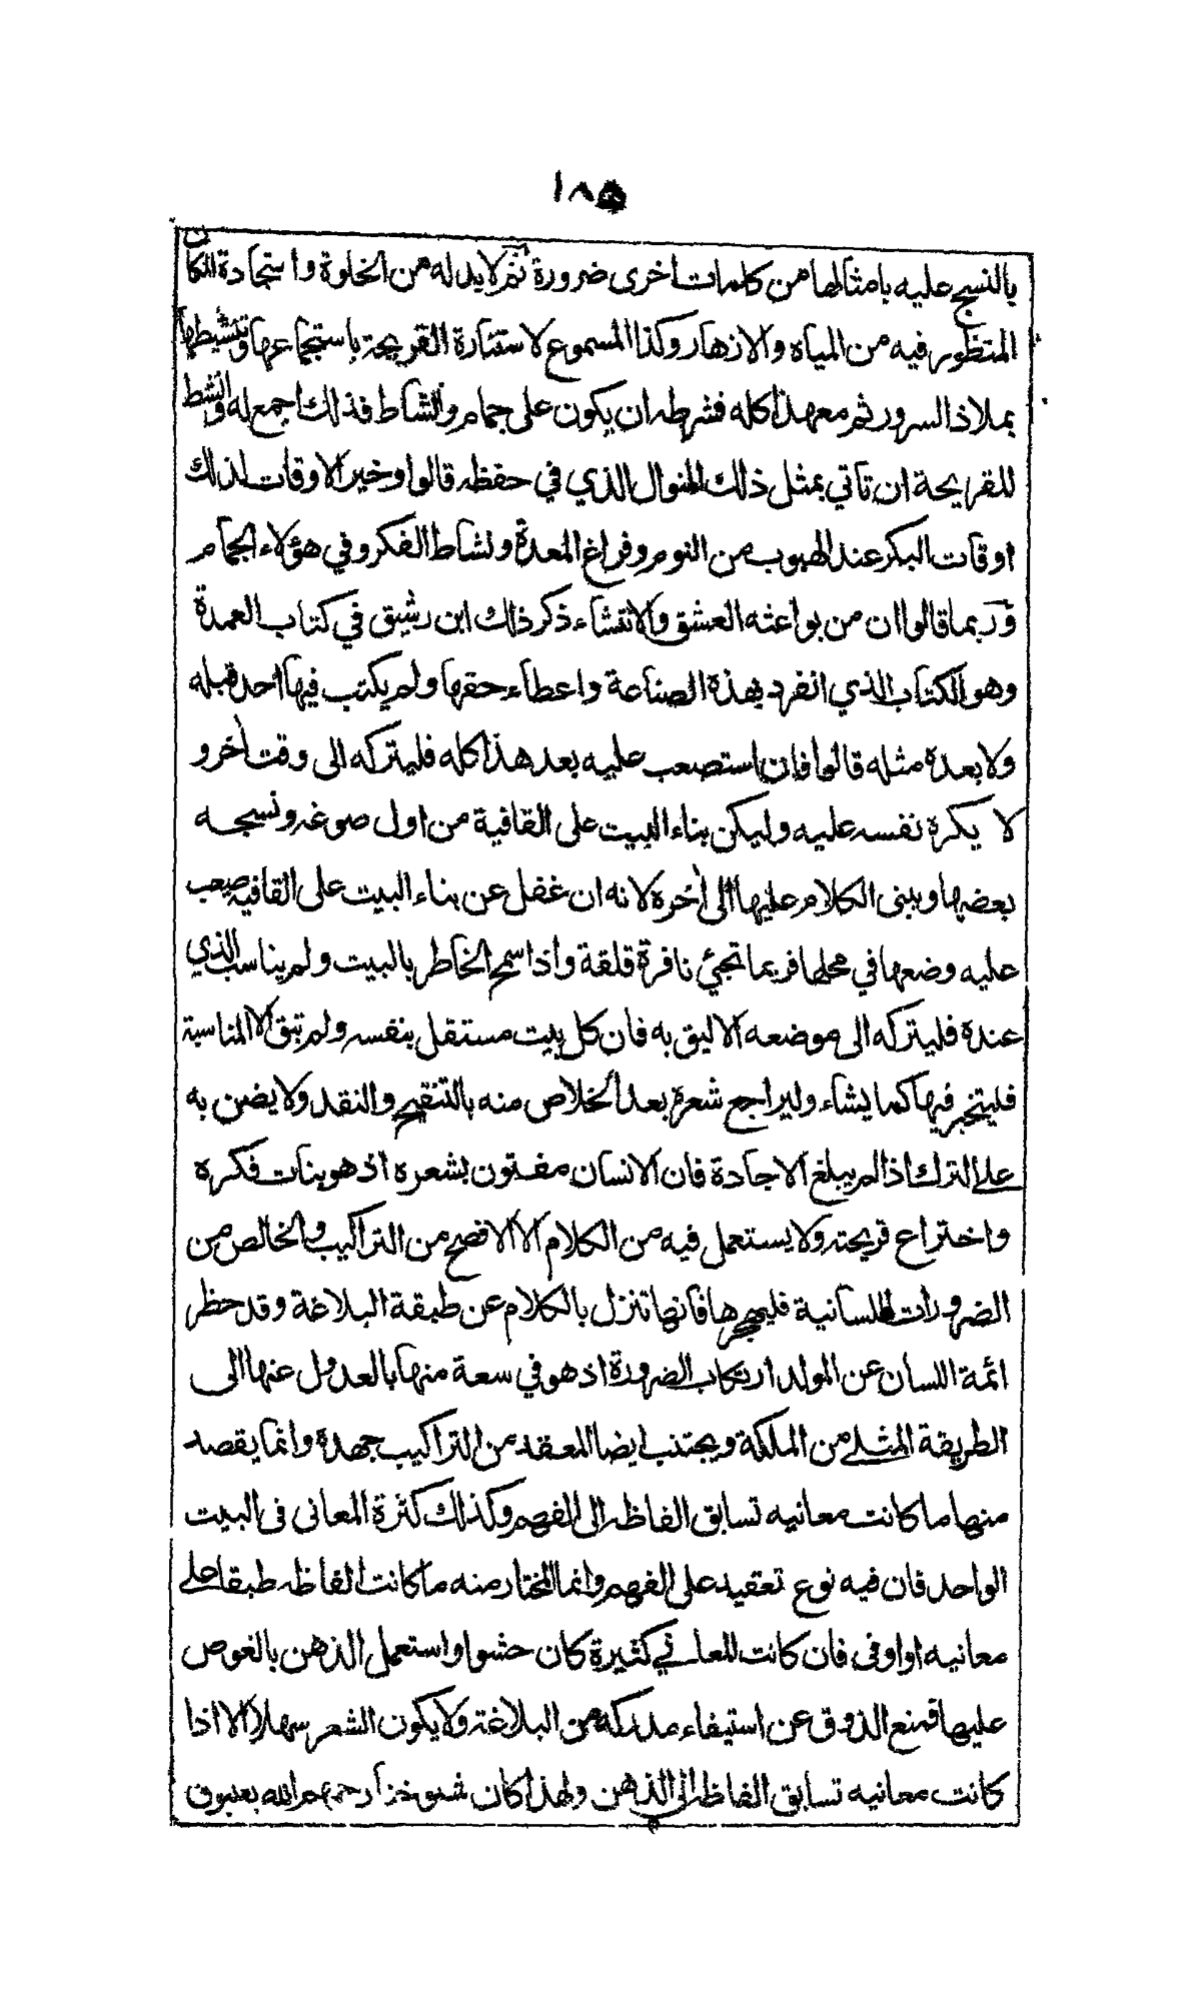 ١٨٥
بالنسج عليه بامثالها من كلمات اخرى ضرورة ثم لا بد له من الخلوة واستجادة المكان
المنظور فيه من المياه والازهار وكذا المسموع لاستثارة القريحة باستجماعها وتنشيطها
بملاذ السرور ثم مع هذا كله فشرطه ان يكون على جمام ونشاط فذلك اجمع له وانشط
للقريحة ان تاتي بمثل ذلك المنوال الذي في حفظه قالوا وخير الاوقات لذلك
اوقات البكر عند الهبوب من النوم وفراغ المعدة ونشاط الفكر وفي هؤلاء الجمام
وربما قالوا ان من بواعثه العشق والانتشاء ذكر ذلك ابن رشيق في كتاب العمدة
وهو الكتاب الذي انفرد بهذه الصناعة واعطاء حقها ولم يكتب فيها احد قبله
ولا بعده مثله قالوا فان استصعب عليه بعد هذا كله فليتركه الى وقت اخر و
لا يكره نفسه عليه وليكن بناء البيت على القافية من اول صوغه ونسجه
بعضها ويبنى الكلام عليها الى اخره لانه ان غفل عن بناء البيت على القافيه صعب
عليه وضعها في محلها فربما تجئ نافرة قلقة واذا سمح الخاطر بالبيت ولم يناسب الذي
عنده فليتركه الى موضعه الاليق به فان كل بيت مستقل بنفسه ولم تبق الا المناسبة
فليتخير فيها كما يشاء وليراجع شعره بعد الخلاص منه بالتنقيح والنقد ولا يضن به
على الترك اذا لم يبلغ الاجادة فان الانسان مفتون بشعره اذ هو بنات فكره
واختراع قريحته ولا يستعمل فيه من الكلام الا الافصح من التراكيب والخالص من
الضرورات اللسانية فليهجرها فانها تنزل بالكلام عن طبقة البلاغة وقد حظر
ائمة اللسان عن المولد ارتكاب الضرورة اذ هو في سعة منها بالعدول عنها الى
الطريقة المثلى من الملكة ويجتنب ايضا المعقد من التراكيب جهده وانما يقصد
منها ما كانت معانيه تسابق الفاظه الى الفهم وكذلك كثرة المعاني في البيت
الواحد فان فيه نوع تعقيد على الفهم وانما المختار منه ما كانت الفاظه طبقا على
معانيه او اوفى فان كانت المعاني كثيرة كان حشوا واستعمل الذهن بالغوص
عليها فمنع الذوق عن استيفاء مدركه من البلاغة ولا يكون الشعر سهلا الا اذا
كانت معانيه تسابق الفاظه الى الذهن ولهذا كان شيوخنا رحمهم الله يعيبون